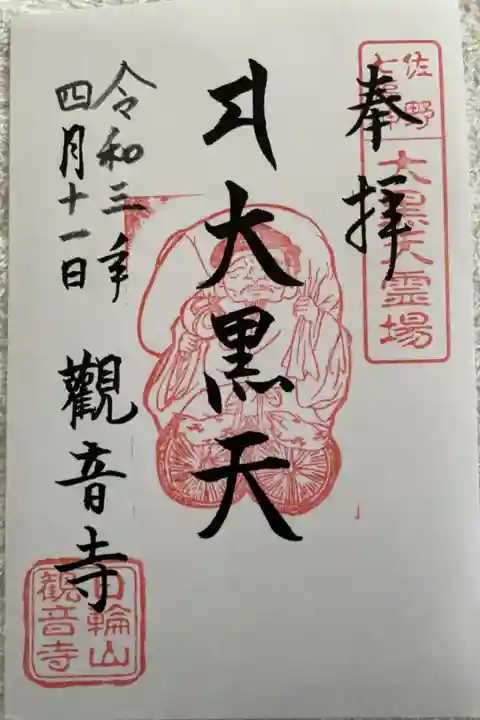 奉拝
佐野
七福神
大黒天霊場
大黒天
令和三年
四月十一日
觀音寺
日輪山
観音寺